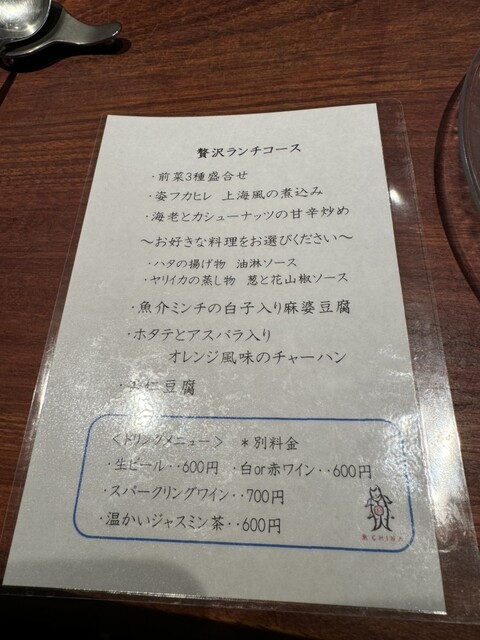 贅沢ランチコース
・前菜3種盛合せ
・姿フカヒレ 上海風の煮込み
・海老とカシューナッツの甘辛炒め
～お好きな料理をお選びください～
・ハタの揚げ物 油淋ソース
・ヤリイカの蒸し物 葱と花山椒ソース
・魚介ミンチの白子入り麻婆豆腐
・ホタテとアスパラ入り
オレンジ風味のチャーハン
・仁豆腐
＜ドリンクメニュー＞ ＊別料金
・生ビール‥600円 ・白or赤ワイン‥600円
・スパークリングワイン‥700円
・温かいジャスミン茶‥600円
魚CHINA